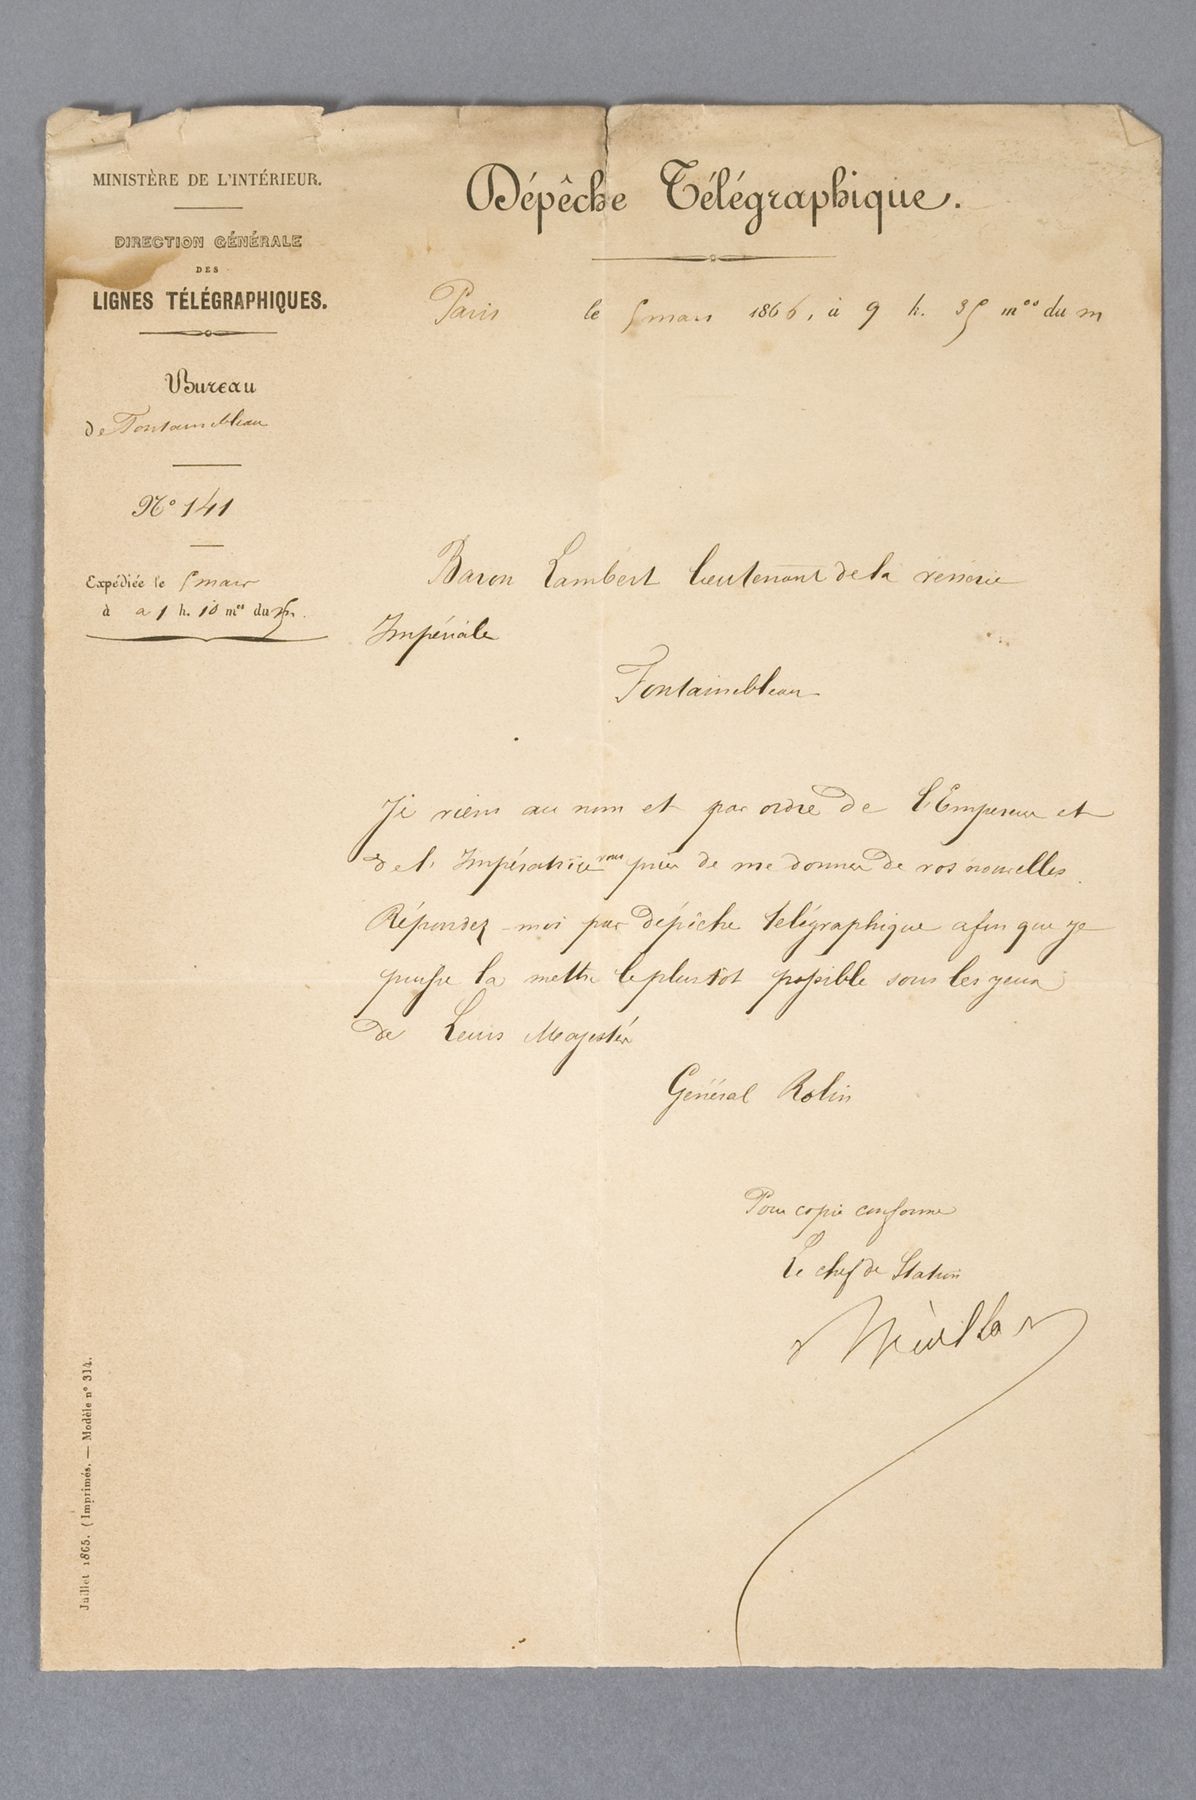 MINISTÈRE DE L'INTÉRIEUR.
DIRECTION GÉNÉRALE
DES
LIGNES TÉLÉGRAPHIQUES.
Bureau
de Fontainebleau
N° 141
Expédiée le 5 mars
à a 1 h. 10 mes du
Dépêche Télégraphique.
Paris le 5 mars 1866, à 9 h. 35 mes du m
Baron Lambert lieutenant de la vénerie
Impériale
Fontainebleau
Je viens au nom et par ordre de l'Empereur et
de l'Impératrice vous prier de me donner de vos nouvelles.
Répondez-moi par dépêche télégraphique afin que je
puisse la mettre le plus tôt possible sous les yeux
de Leurs Majestés
Général Rolin
Pour copie conforme
Le chef de Station
Juillet 1865. (Imprimés. — Modèle n° 314.